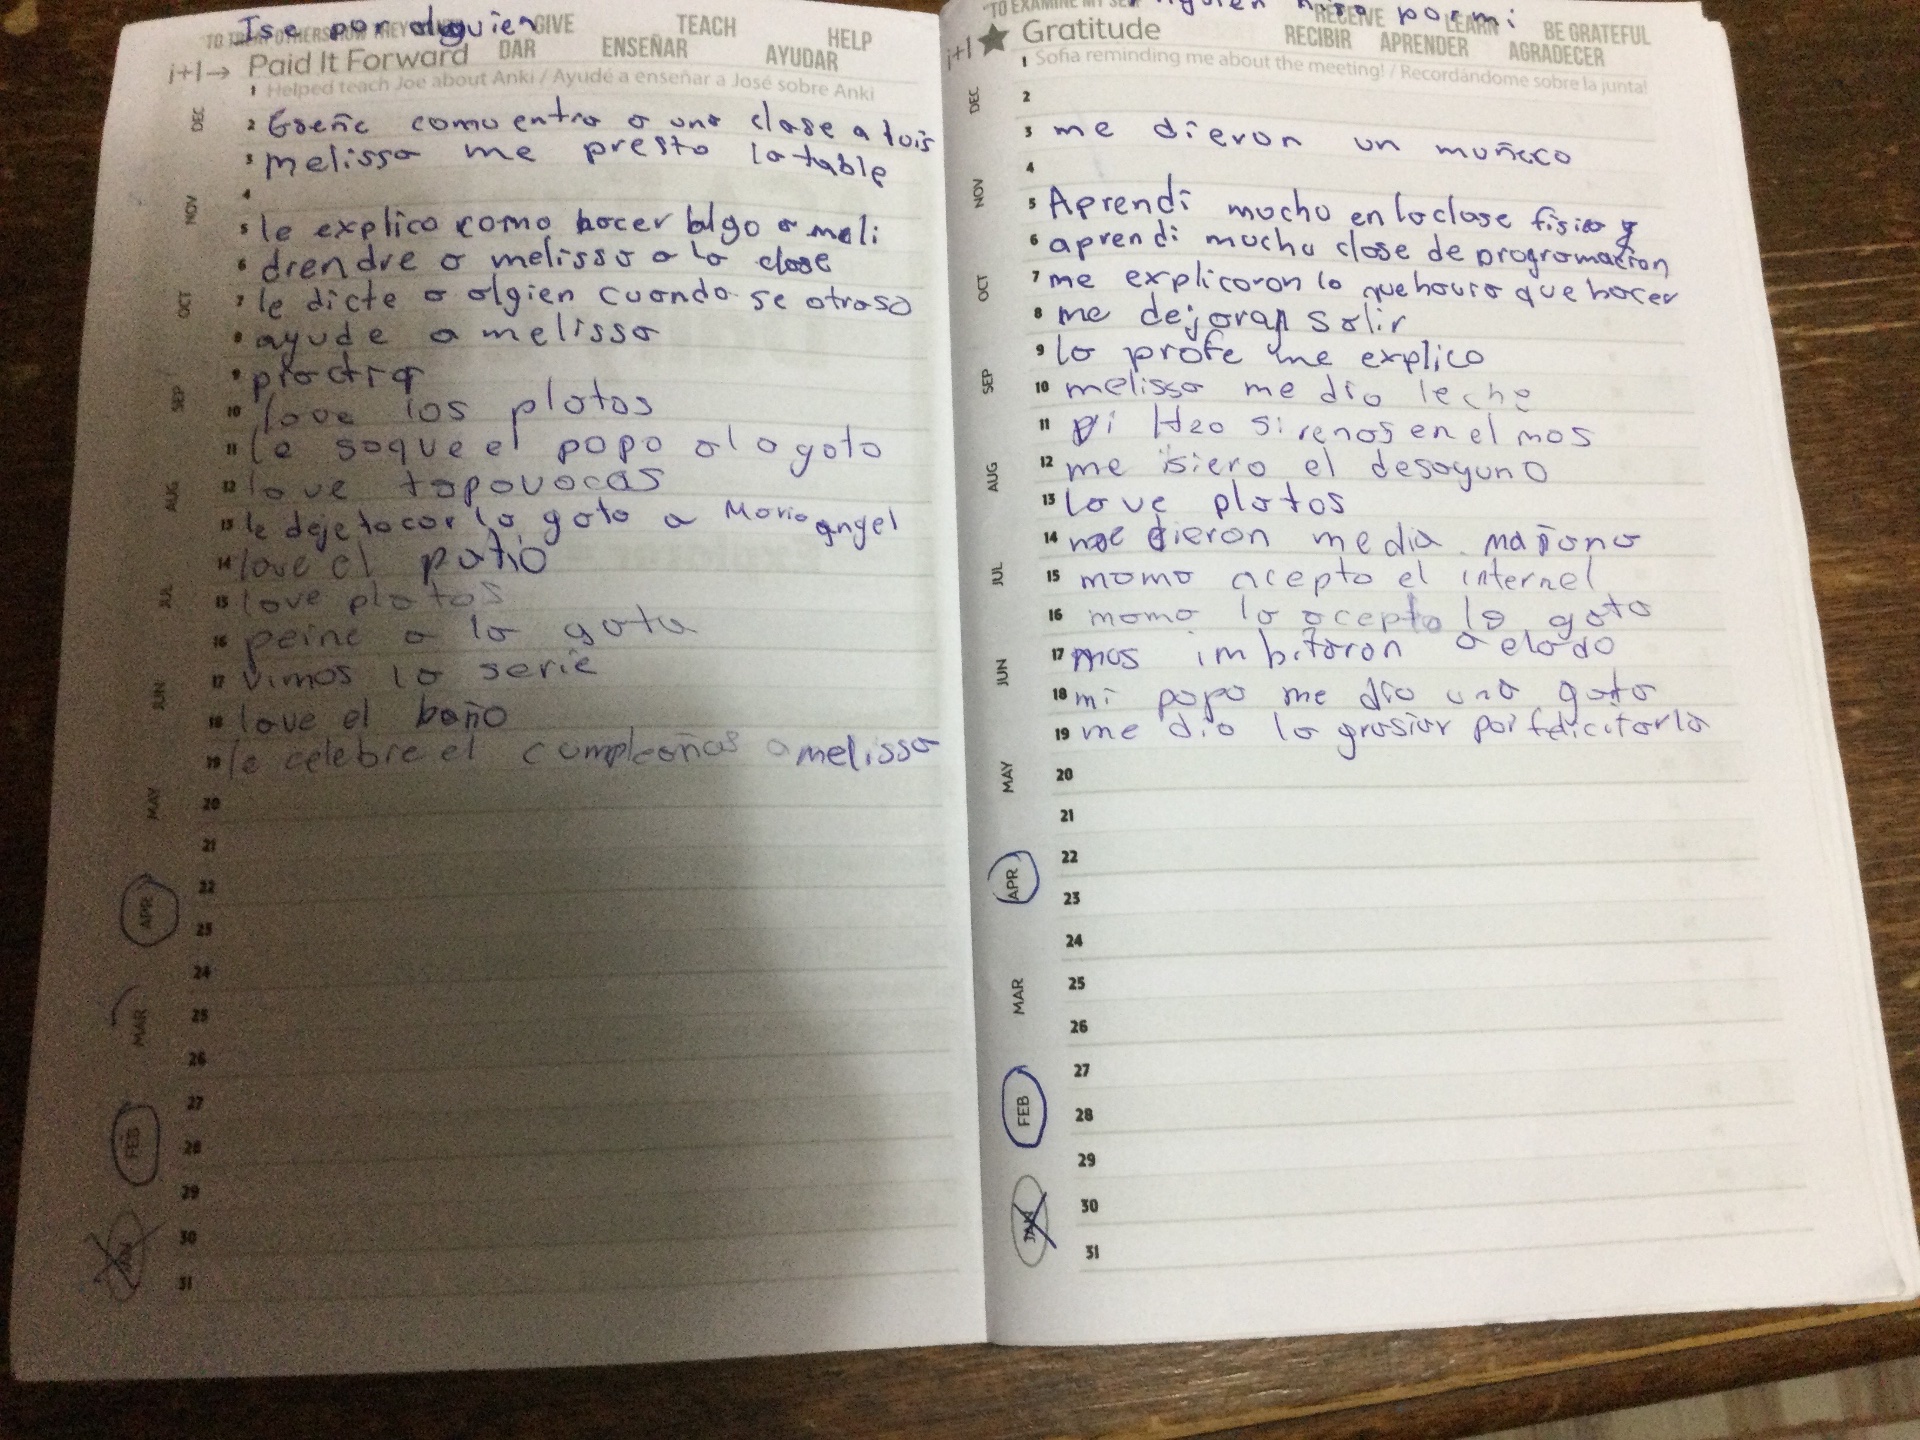 Ise por alguien
GIVE TEACH HELP
i+1→ Paid It Forward DAR ENSEÑAR AYUDAR
1 Helped teach Joe about Anki / Ayudé a enseñar a José sobre Anki
DEC
2 como entra a una clase a luis
3 melissa me presto la table
4
NOV
5 le explico como hacer algo a meli
6 a melissa a la clase
7 le dicte a algien cuando se atraso
OCT
8 ayude a melissa
9
SEP
10 love los platos
11 le saque el popo a la gata
12 love tapovocas
AUG
13 le deje tocar la gata a Maria angel
14 love el patio
15 love platos
JUL
16 peine a la gata
17 vimos la serie
JUN
18 love el baño
19 le celebre el cumpleañas a melissa
20
MAY
21
22
APR
23
24
25
MAR
26
27
FEB
28
29
30
JAN
31
"TO EXAMINE MY SELF RECEIVE LEARN BE GRATEFUL
hiso por mi
i+1 ★ Gratitude RECIBIR APRENDER AGRADECER
1 Sofia reminding me about the meeting! / Recordándome sobre la junta!
DEC
2
3 me dieron un muñeco
4
NOV
5 Aprendi mucho en la clase fisica y
6 aprendi mucho clase de programacion
7 me explicaron lo que que hacer
OCT
8 me dejaran salir
9 la profe me explico
SEP
10 melissa me dio leche
11 sirenas en el mas
12 me isiero el desayuno
AUG
13 love platos
14 me dieron media mañana
15 mama acepto el internel
JUL
16 mama lo acepto la gata
17 mos imbitaron a elado
JUN
18 mi papa me dio una gata
19 me dio la grasiar por felicitarla
MAY
20
21
22
APR
23
24
25
MAR
26
27
FEB
28
29
30
JAN
31